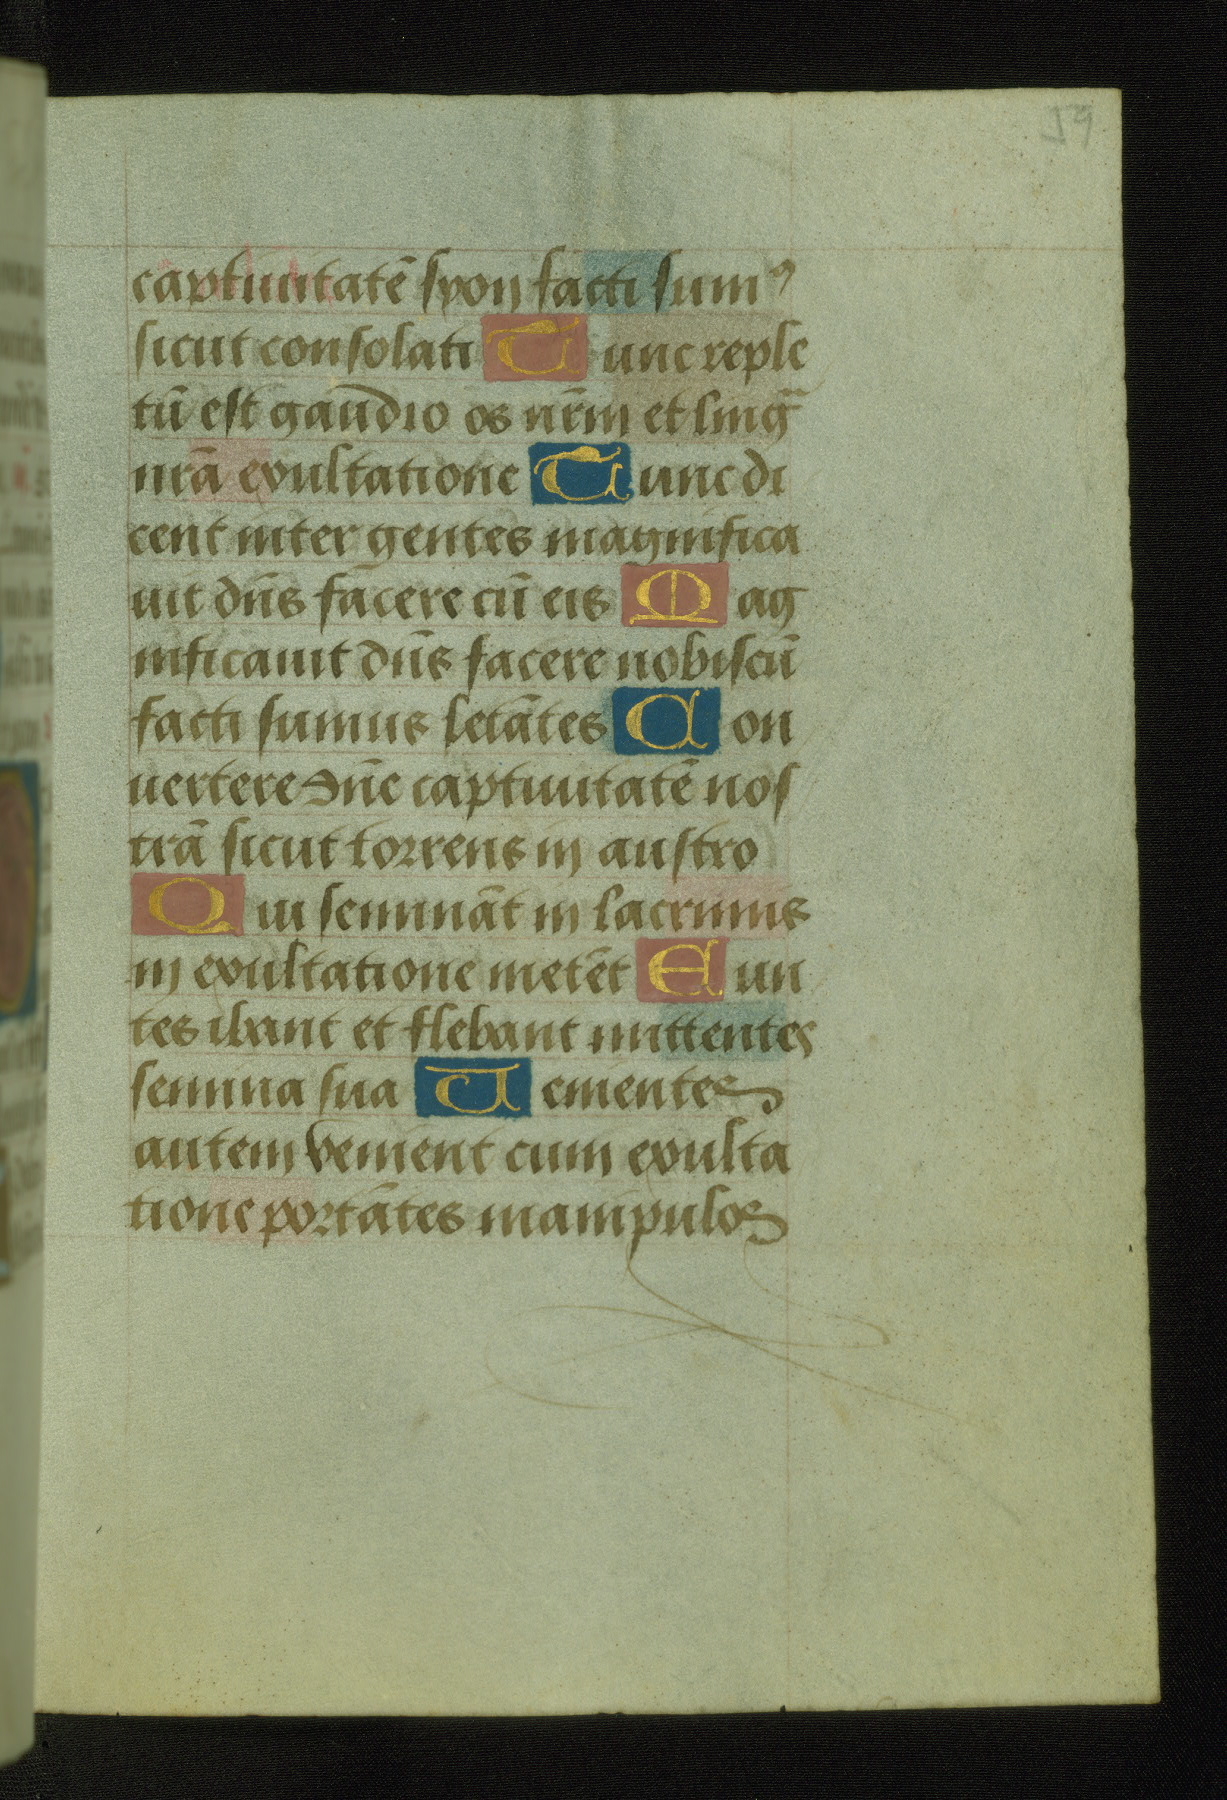 59
captiuitatē syon facti sumꝰ
sicut consolati Tunc reple
tū est gaudio os nr̄m et lingᷓ
nrā exultatione Tunc di
cent inter gentes magnifica
uit dn̄s facere cū eis Mag
nificauit dn̄s facere nobiscū
facti sumus letātes Con
uertere dn̄e captiuitatē nos
trā sicut torrens in austro
Qui semināt in lacrimis
in exultatione metēt Eun
tes ibant et flebant mittentes
semina sua Uenientes
autem venient cum exulta
tione portātes manipulos